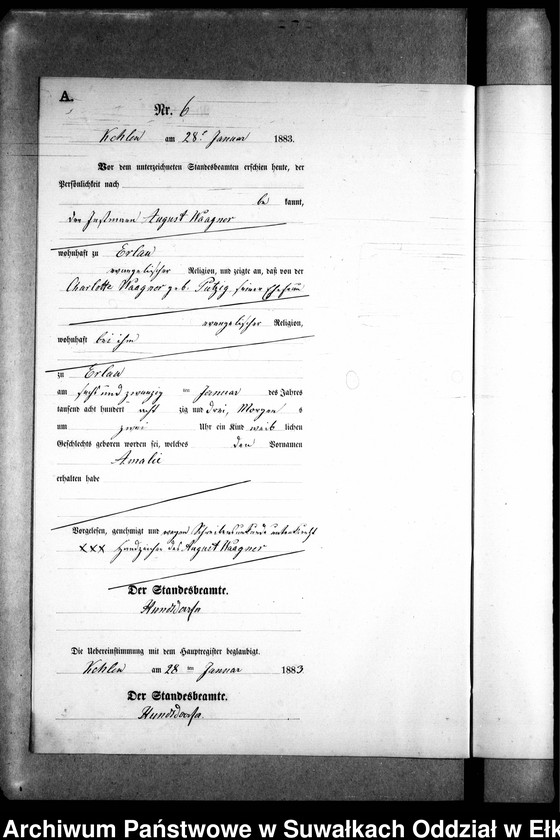 A.
Nr. 6
Kehlen am 28t Januar 1883.
Vor dem unterzeichneten Standesbeamten erschien heute, der
Persönlichkeit nach
be kannt,
der Instmann August Waagner
wohnhaft zu Erlau
evangelischer Religion, und zeigte an, daß von der
Charlotte Waagner geb. Putzig seiner Ehefrau
evangelischer Religion,
wohnhaft bei ihm
zu Erlau
am sechs und zwanzig ten Januar des Jahres
tausend acht hundert acht zig und drei, Morgen s
um zwei Uhr ein Kind weib lichen
Geschlechts geboren worden sei, welches den Vornamen
Amalie
erhalten habe
Vorgelesen, genehmigt und wegen Schreibensunkunde unterkreuzt
XXX Handzeichen des August Waagner
Der Standesbeamte.
Hundsdoerfer
Die Uebereinstimmung mit dem Hauptregister beglaubigt.
Kehlen am 28 ten Januar 1883
Der Standesbeamte.
Hundsdoerfer
Archiwum Państwowe w Suwałkach Oddział w Ełk